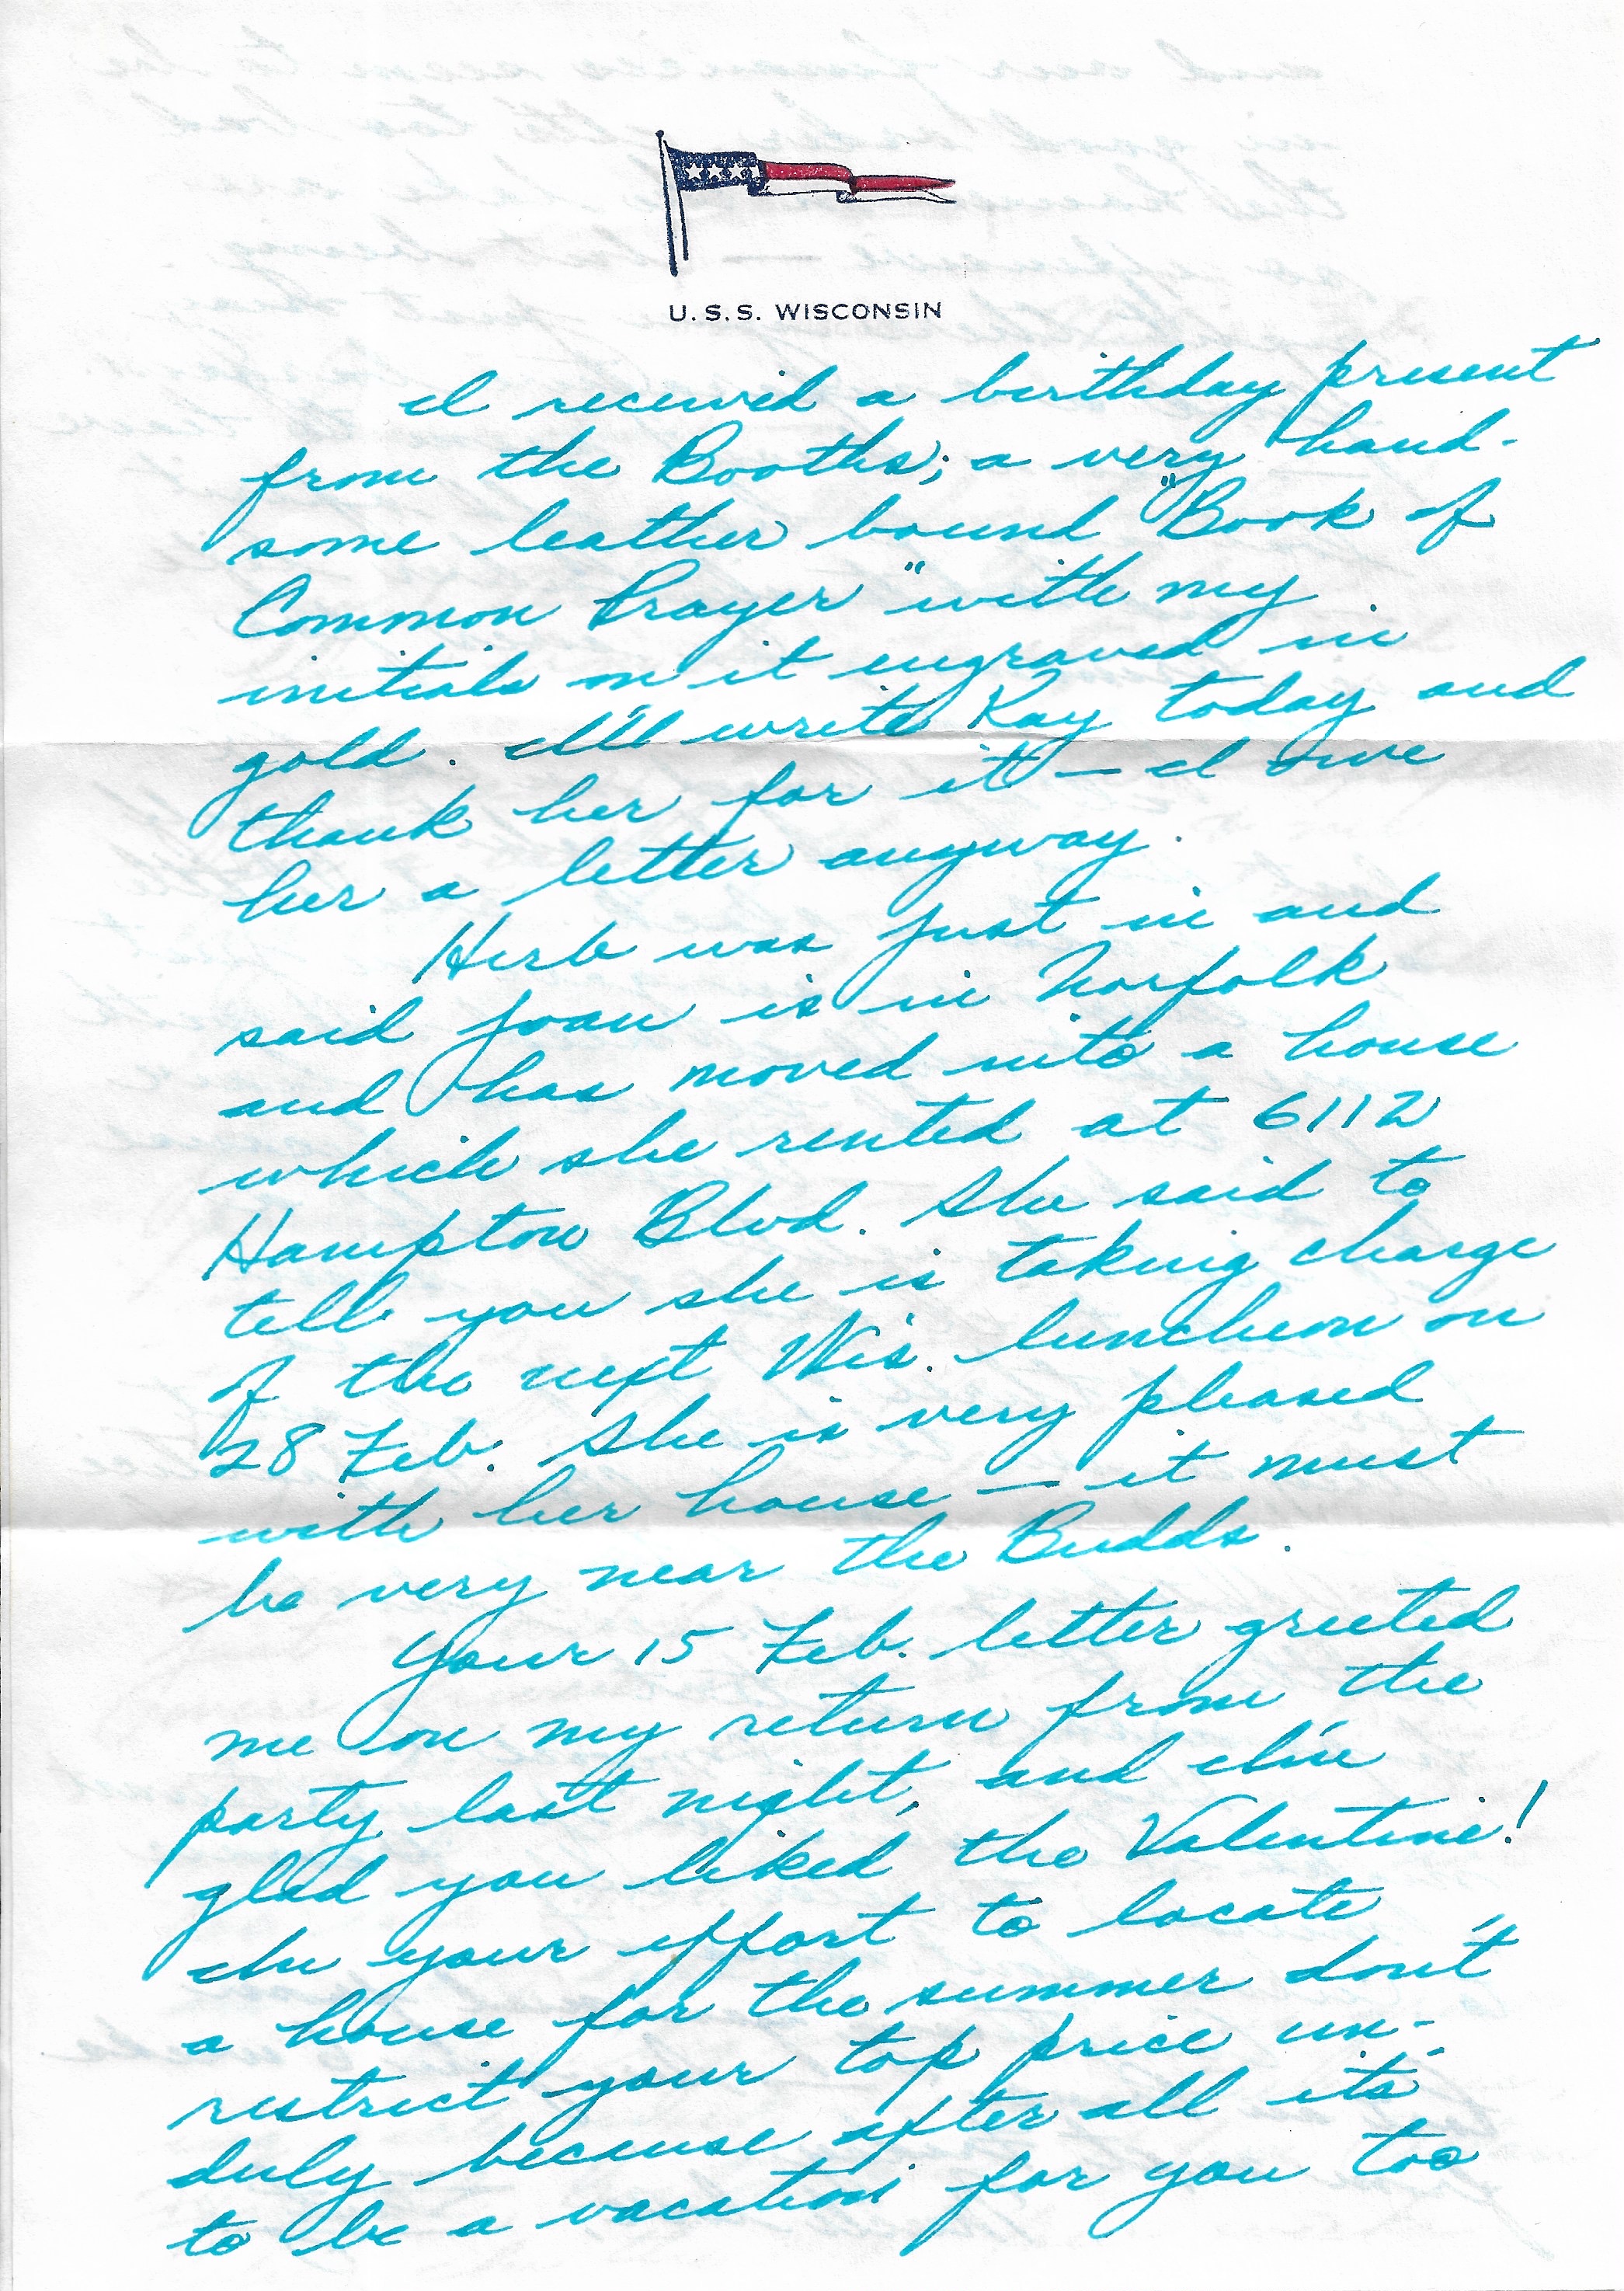 U.S.S. WISCONSIN
I received a birthday present
from the Booths; a very hand-
some leather bound "Book of
Common Prayer" with my
initials on it engraved in
gold. I'll write Kay today and
thank her for it — I owe
her a letter anyway.
Herb was just in and
said Joan is in Norfolk
and has moved into a house
which she rented at 6112
Hampton Blvd. She said to
tell you she is taking charge
of the next Wis. luncheon on
28 Feb. She is very pleased
with her house — it must
be very near the Budds.
Your 15 Feb. letter greeted
me on my return from the
party last night, and I'm
glad you liked the Valentine!
In your effort to locate
a house for the summer don't
restrict your top price un-
duly because after all it's
to be a vacation for you too